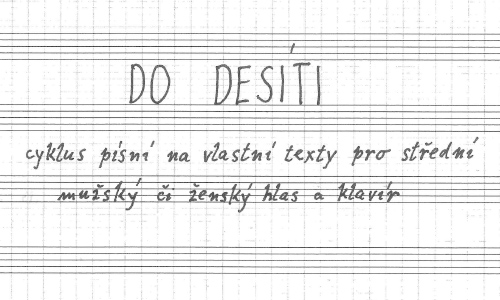 DO DESÍTI
cyklus písní na vlastní texty pro střední
mužský či ženský hlas a klavír